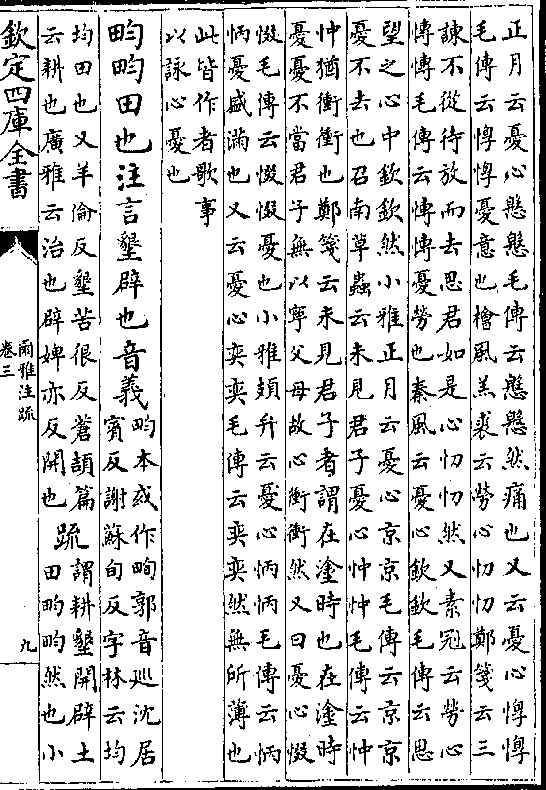 正月云憂心慇慇毛傳云慇慇然痛也又云憂心惸惸
毛傳云惸惸憂意也檜風羔裘云勞心忉忉鄭箋云三
諫不從待放而去思君如是心忉忉然又素冠云勞心
慱慱毛傳云慱慱憂勞也秦風云憂心欽欽毛傳云思
望之心中欽欽然小雅正月云憂心京京毛傳云京京
憂不去也召南草蟲云未見君子憂心忡忡毛傳云忡
忡猶衝衝也鄭箋云未見君子者謂在塗時也在塗時
憂憂不當君子無以寧父母故心衝衝然又曰憂心惙
惙毛傳云惙惙憂也小雅頍弁云憂心怲怲毛傳云怲
怲憂盛滿也又云憂心奕奕毛傳云奕奕然無所薄也
此皆作者歌事
以詠心憂也
畇畇田也注言墾辟也音義
畇本或作㽦郭音巡沈居
賓反謝蘇旬反字林云均
均田也又羊倫反墾苦很反蒼頡篇
云耕也廣雅云治也辟婢亦反開也
疏
謂耕墾開辟土
田畇畇然也小
欽定四庫全書
爾雅注疏
卷三
九